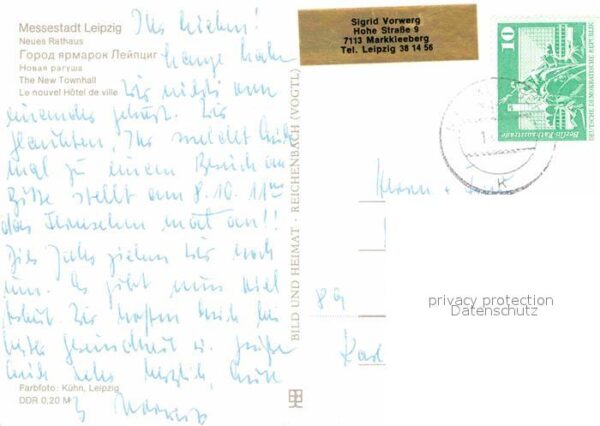 Messestadt Leipzig
Neues Rathaus
Город ярмарок Лейпциг
Новая ратуша
The New Townhall
Le nouvel Hôtel de ville
Ihr Lieben!
Lange haben
wir nichts von
einander gehört. Wir
dachten, Ihr meldet Euch
mal zu einem Besuch an
Bitte stellt am 8.10. 11
das Fernsehen mal an!!
Dies Jahr ziehen wir noch
um. Es gibt nun viel
Arbeit. Wir hoffen Euch bei
bester Gesundheit u. grüßen
Euch sehr herzlich, Eure
Farbfoto: Kühn, Leipzig
DDR 0,20 M
BILD UND HEIMAT · REICHENBACH (VOGTL)
Sigrid Vorwerg
Hohe Straße 9
7113 Markkleeberg
Tel. Leipzig 38 14 56
10
Berlin-Rathausstraße
DEUTSCHE DEMOKRATISCHE REPUBLIK
Herrn +
89
privacy protection
Datenschutz